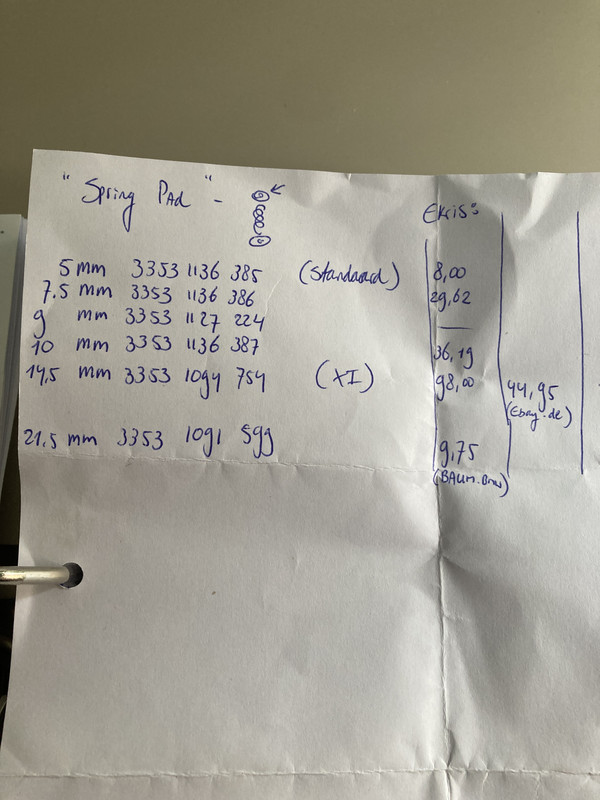 "Spring Pad" -
Ekris:
5 mm 3353 1136 385 (Standaard) 8,00
7.5 mm 3353 1136 386 29,62
9 mm 3353 1127 224 —
10 mm 3353 1136 387 36,19
14,5 mm 3353 1094 754 (XI) 98,00 44,95
(Ebay.de)
21,5 mm 3353 1091 599 9,75
(BAUM.Bmw)